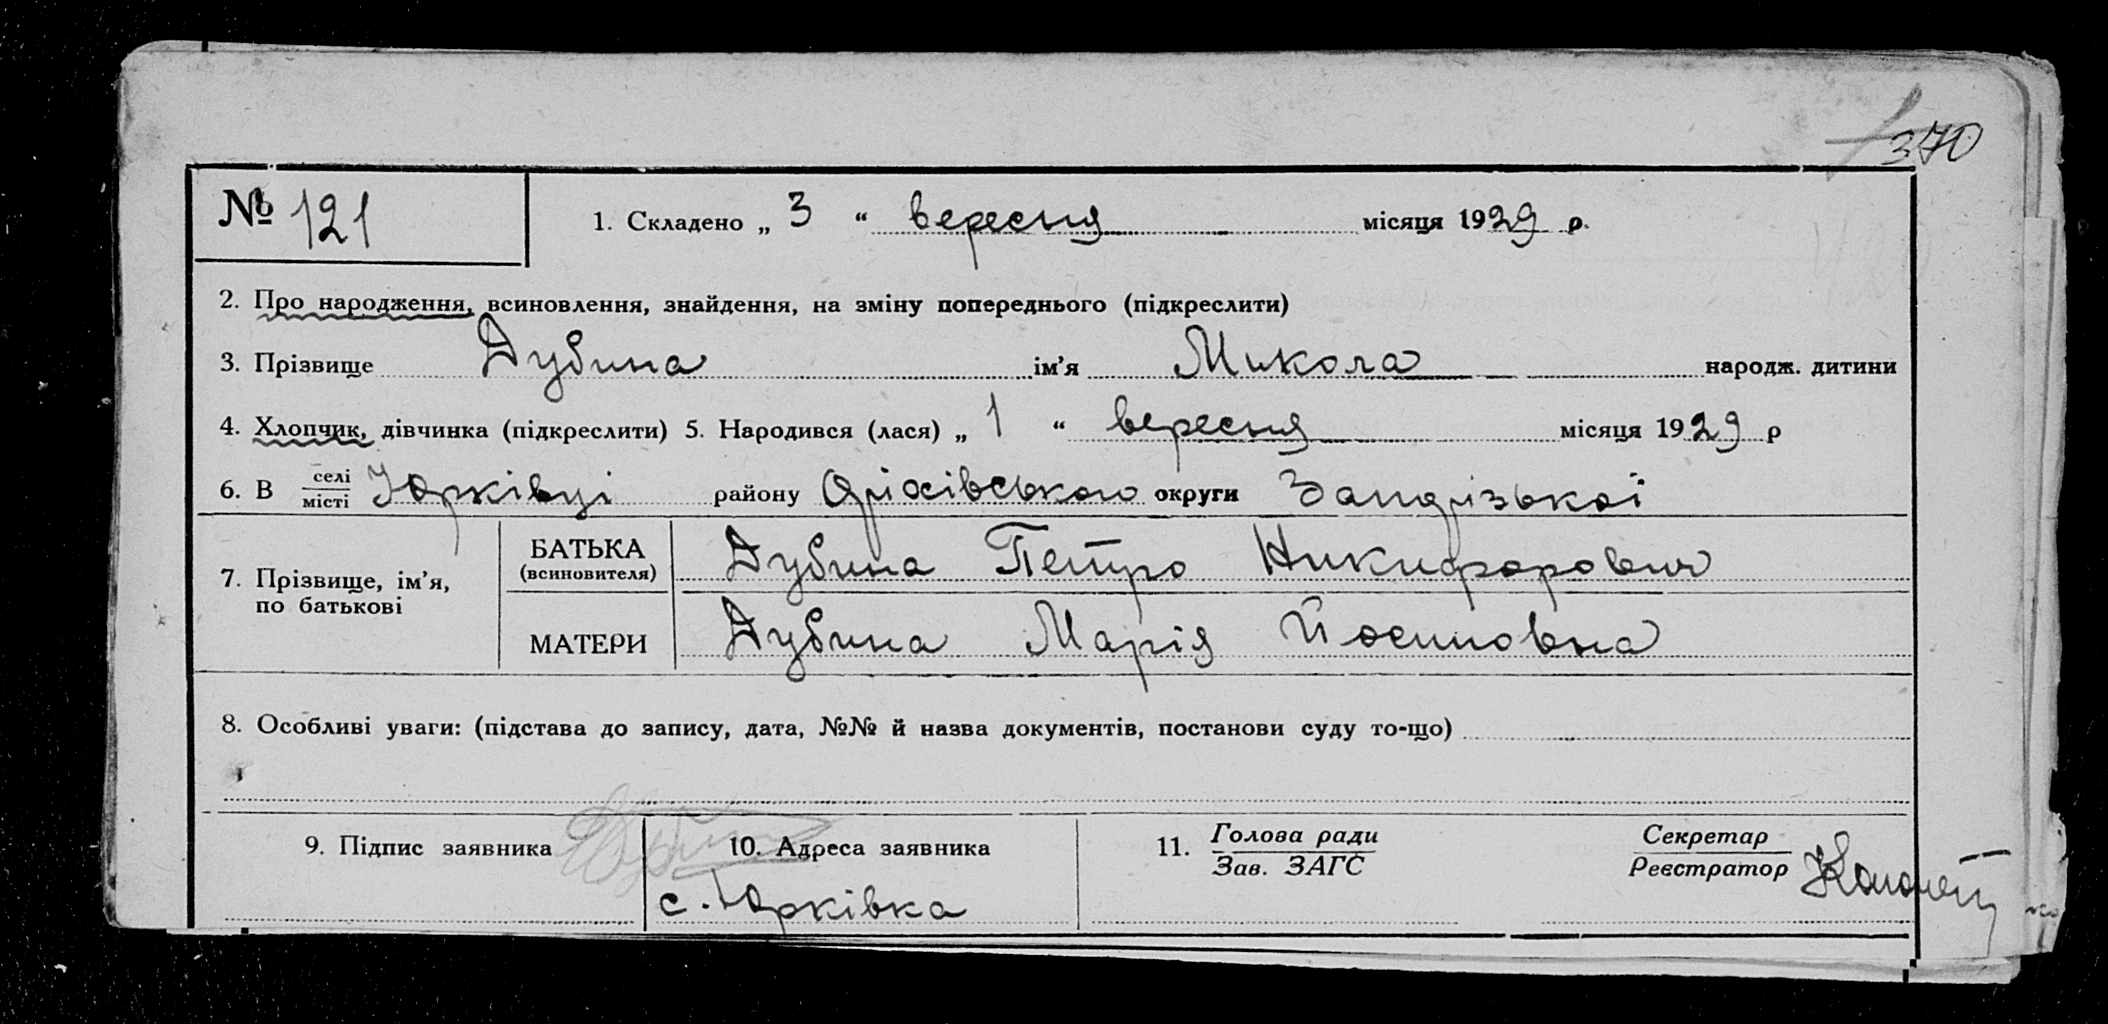 370
№ 121 1. Складено „ 3 “ вересня місяця 1929 р.
2. Про народження, всиновлення, знайдення, на зміну попереднього (підкреслити)
3. Прізвище Дубина ім’я Микола народж. дитини
4. Хлопчик, дівчинка (підкреслити) 5. Народився (лася) „ 1 “ вересня місяця 1929 р
6. В селі / місті Юрківці району Оріхівського округи Запорізької
7. Прізвище, ім’я, по батькові
БАТЬКА (всиновителя) Дубина Петро Никифорович
МАТЕРИ Дубина Марія Йосиповна
8. Особливі уваги: (підстава до запису, дата, №№ й назва документів, постанови суду то-що)
9. Підпис заявника 10. Адреса заявника 11. Голова ради / Зав. ЗАГС Секретар / Реєстратор
с. Юрківка